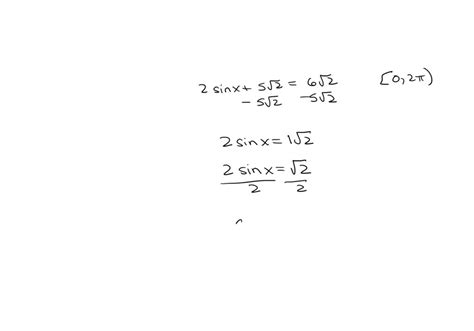 2 sinx + 5√2 = 6√2 [0, 2π)
- 5√2 -5√2
2 sinx = 1√2
2 sinx = √2
2 2